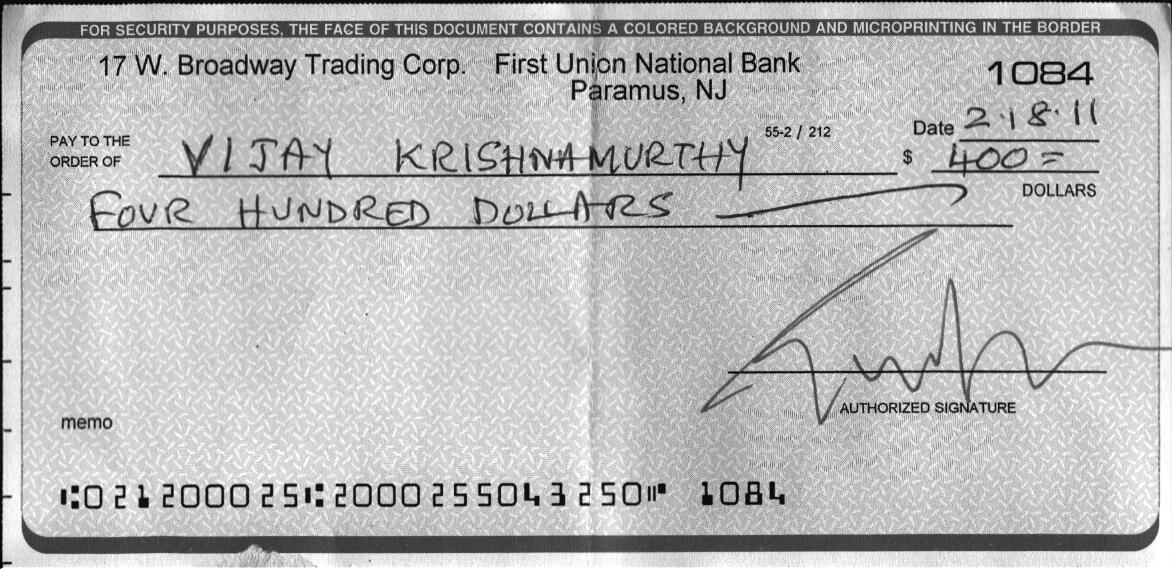 FOR SECURITY PURPOSES, THE FACE OF THIS DOCUMENT CONTAINS A COLORED BACKGROUND AND MICROPRINTING IN THE BORDER
17 W. Broadway Trading Corp. First Union National Bank 1084
Paramus, NJ
55-2 / 212 Date 2.18.11
PAY TO THE
ORDER OF VIJAY KRISHNAMURTHY $ 400=
FOUR HUNDRED DOLLARS DOLLARS
AUTHORIZED SIGNATURE
memo
⑆021200025⑆2000255043250⑈ 1084